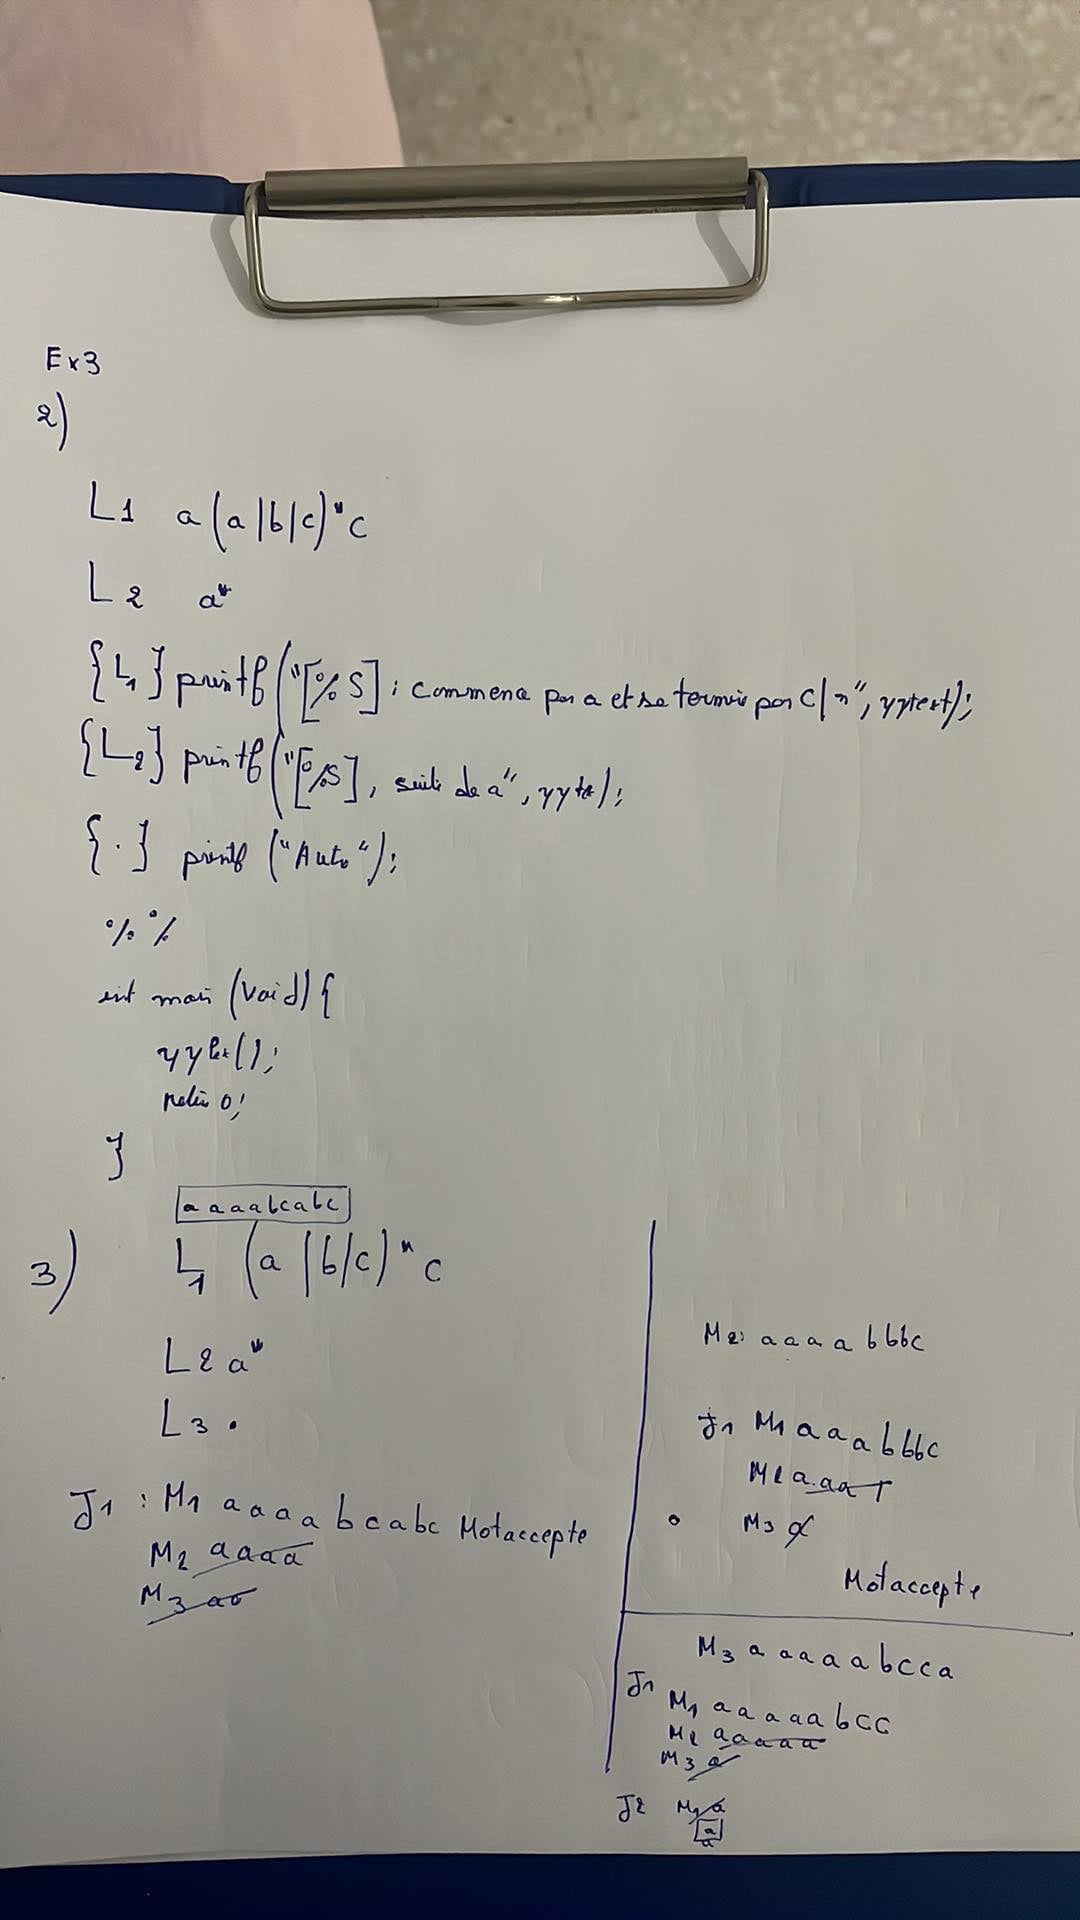 Ex3
2)
L1 a(a|b|c)*c
L2 a*
{L1} printf("[%s]: commence par a et se termine par c\n", yytext);
{L2} printf("[%s], suite de a", yyte);
{.} printf ("Auto");
%%
int main (void) {
yylex();
0;
}
aaaabcabc
3) L1 (a|b|c)*c
L2 a*
L3 .
J1 : M1 aaaabcabc Motaccepte
M2 aaaa
M3
M2: aaaabbbc
J1 M1 aaabbbc
M2 aaa
M3 a
Motaccepte
M3 aaaaabcca
J1
M1 aaaaabcc
M2 aaaaa
M3 a
J2 M1 a
a
a